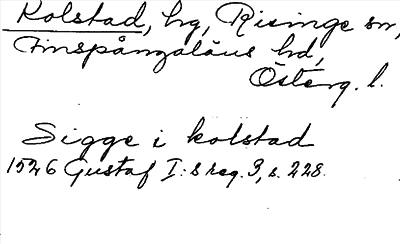 Kolstad, hg, Risinge sn,
Finspångaläns hd,
Österg. l.
Sigge i kolstad
1526 Gustaf I:s reg. 3, s. 228.